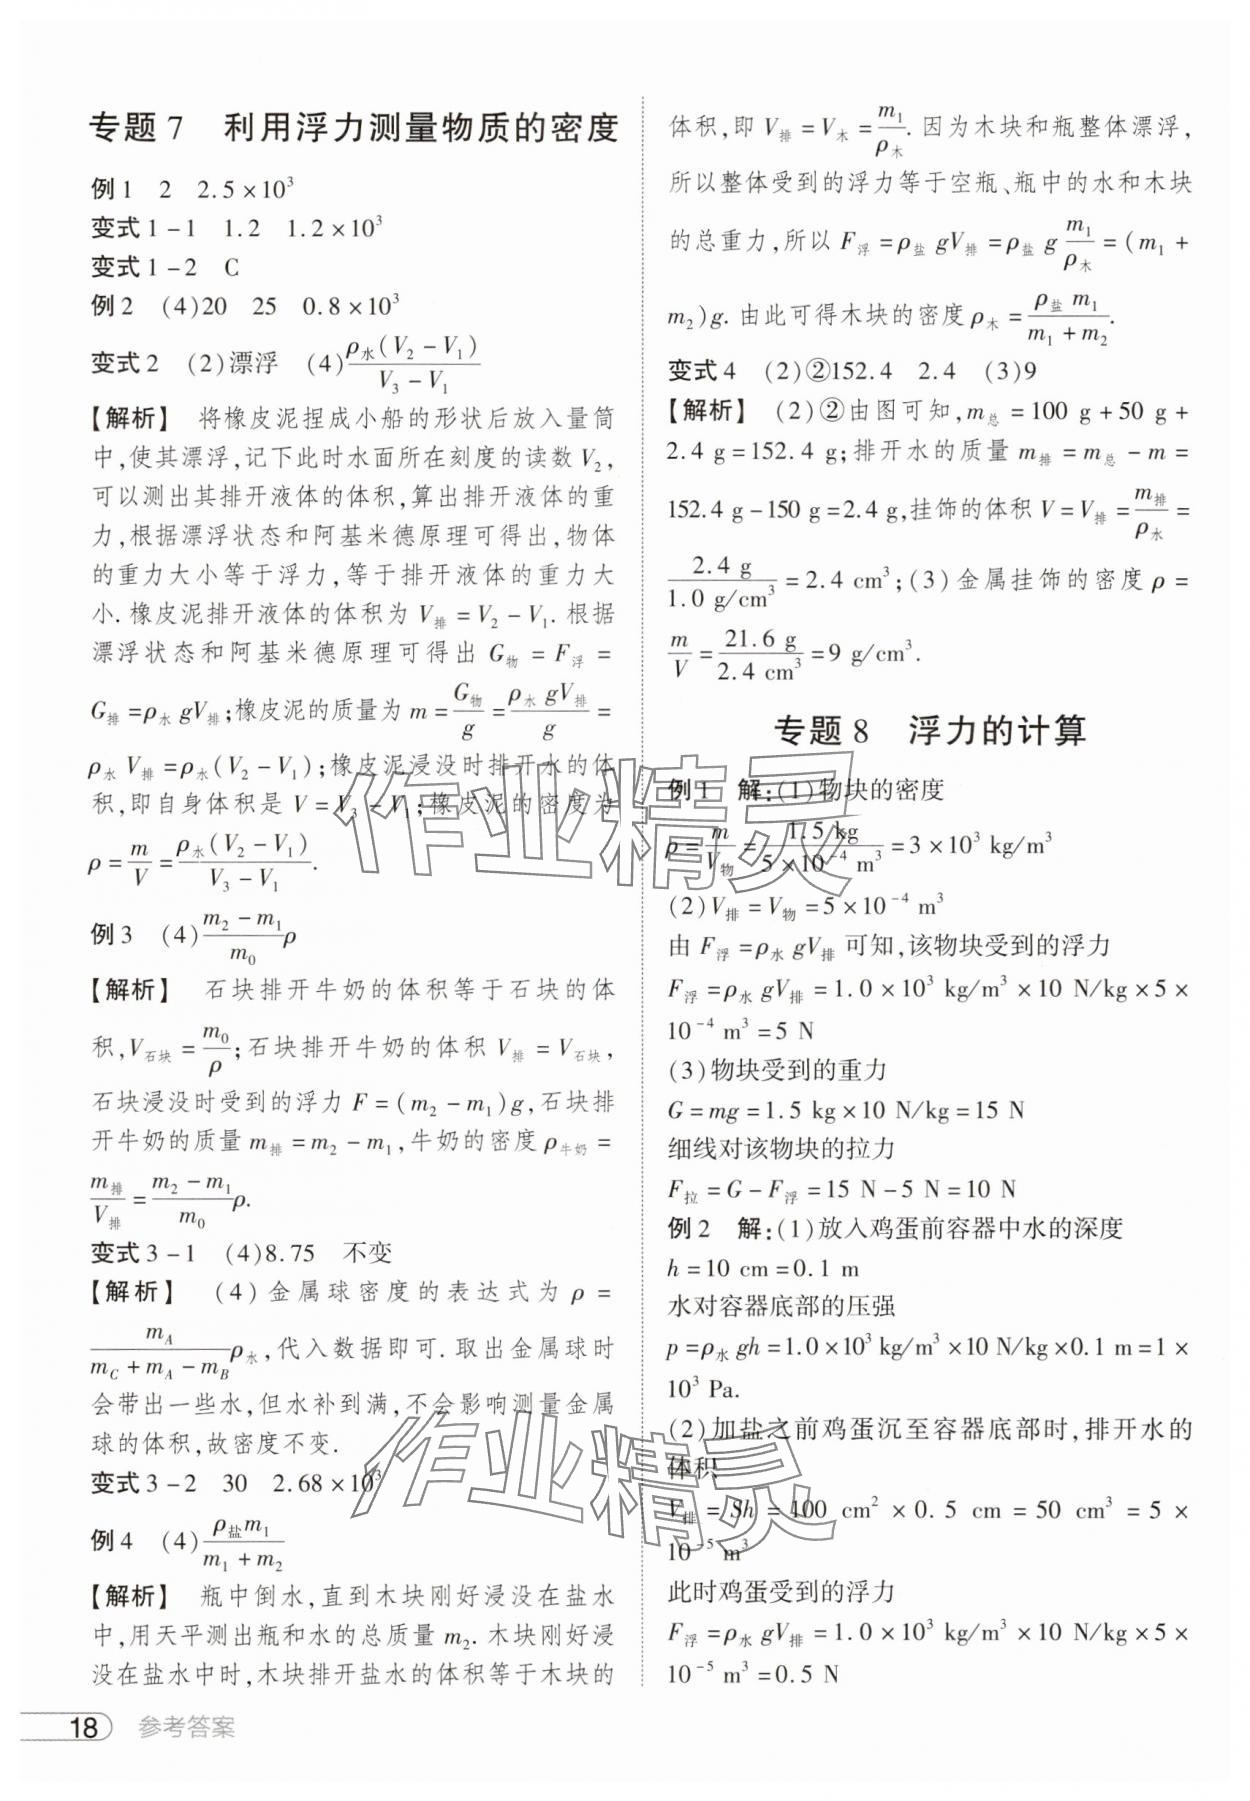 专题7 利用浮力测量物质的密度
例1 2 2.5×10³
变式1-1 1.2 1.2×10³
变式1-2 C
例2 (4)20 25 0.8×10³
变式2 (2)漂浮 (4)ρ水(V₂-V₁)/(V₃-V₁)
【解析】 将橡皮泥捏成小船的形状后放入量筒
中,使其漂浮,记下此时水面所在刻度的读数V₂,
可以测出其排开液体的体积,算出排开液体的重
力,根据漂浮状态和阿基米德原理可得出,物体
的重力大小等于浮力,等于排开液体的重力大
小.橡皮泥排开液体的体积为V排=V₂-V₁.根据
漂浮状态和阿基米德原理可得出G物=F浮=
G排=ρ水gV排;橡皮泥的质量为m=G物/g=ρ水gV排/g=
ρ水V排=ρ水(V₂-V₁);橡皮泥浸没时排开水的体
积,即自身体积是V=V₃-V₁;橡皮泥的密度为
ρ=m/V=ρ水(V₂-V₁)/(V₃-V₁).
例3 (4)(m₂-m₁)/m₀ ρ
【解析】 石块排开牛奶的体积等于石块的体
积,V石块=m₀/ρ;石块排开牛奶的体积V排=V石块,
石块浸没时受到的浮力F=(m₂-m₁)g,石块排
开牛奶的质量m排=m₂-m₁,牛奶的密度ρ牛奶=
m排/V排=(m₂-m₁)/m₀ ρ.
变式3-1 (4)8.75 不变
【解析】 (4)金属球密度的表达式为ρ=
mA/(mC+mA-mB) ρ水,代入数据即可.取出金属球时
会带出一些水,但水补到满,不会影响测量金属
球的体积,故密度不变.
变式3-2 30 2.68×10³
例4 (4)ρ盐m₁/(m₁+m₂)
【解析】 瓶中倒水,直到木块刚好浸没在盐水
中,用天平测出瓶和水的总质量m₂.木块刚好浸
没在盐水中时,木块排开盐水的体积等于木块的
体积,即V排=V木=m₁/ρ木.因为木块和瓶整体漂浮,
所以整体受到的浮力等于空瓶、瓶中的水和木块
的总重力,所以F浮=ρ盐gV排=ρ盐g m₁/ρ木=(m₁+
m₂)g.由此可得木块的密度ρ木=ρ盐m₁/(m₁+m₂).
变式4 (2)②152.4 2.4 (3)9
【解析】 (2)②由图可知,m总=100 g+50 g+
2.4 g=152.4 g;排开水的质量m排=m总-m=
152.4 g-150 g=2.4 g,挂饰的体积V=V排=m排/ρ水=
2.4 g/1.0 g/cm³=2.4 cm³;(3)金属挂饰的密度ρ=
m/V=21.6 g/2.4 cm³=9 g/cm³.
专题8 浮力的计算
例1 解:(1)物块的密度
ρ=m/V物=1.5 kg/5×10⁻⁴ m³=3×10³ kg/m³
(2)V排=V物=5×10⁻⁴ m³
由F浮=ρ水gV排可知,该物块受到的浮力
F浮=ρ水gV排=1.0×10³ kg/m³×10 N/kg×5×
10⁻⁴ m³=5 N
(3)物块受到的重力
G=mg=1.5 kg×10 N/kg=15 N
细线对该物块的拉力
F拉=G-F浮=15 N-5 N=10 N
例2 解:(1)放入鸡蛋前容器中水的深度
h=10 cm=0.1 m
水对容器底部的压强
p=ρ水gh=1.0×10³ kg/m³×10 N/kg×0.1 m=1×
10³ Pa.
(2)加盐之前鸡蛋沉至容器底部时,排开水的
体积
V排=Sh=100 cm²×0.5 cm=50 cm³=5×
10⁻⁵ m³
此时鸡蛋受到的浮力
F浮=ρ水gV排=1.0×10³ kg/m³×10 N/kg×5×
10⁻⁵ m³=0.5 N
作业精灵
作业精灵
18 参考答案